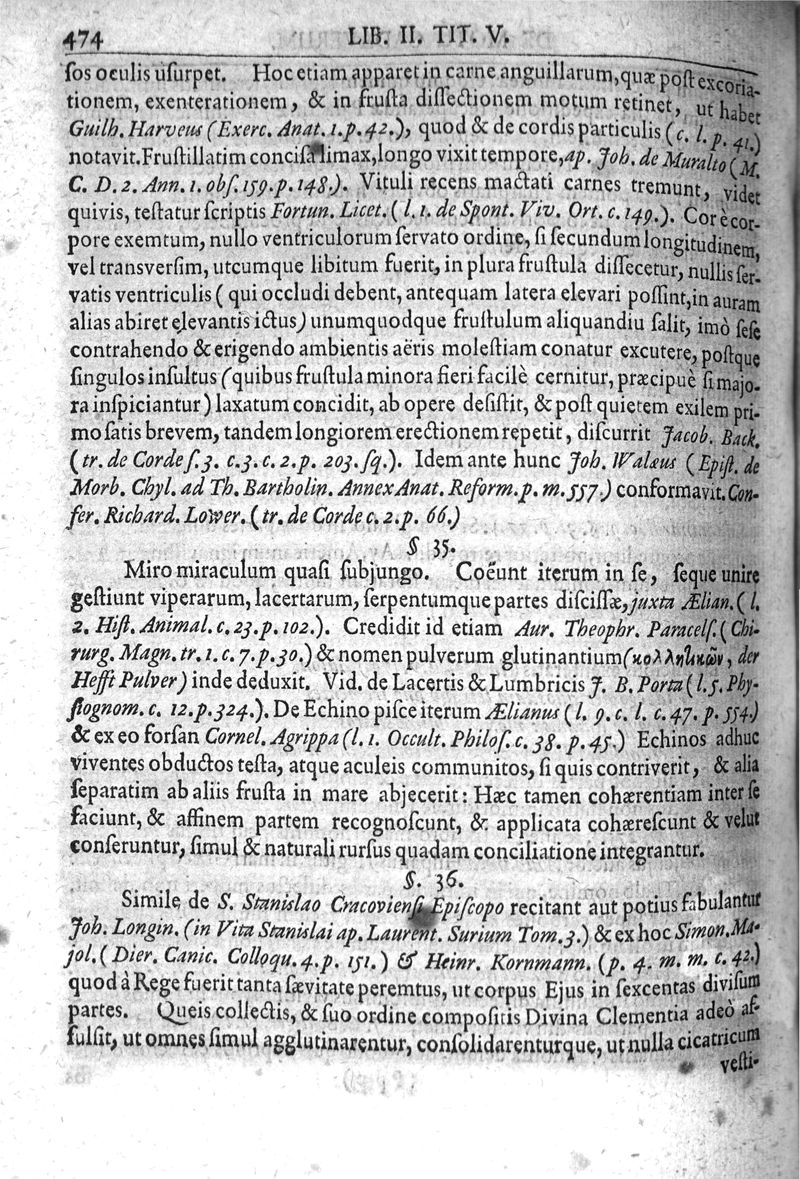 474 LIB. II. TIT. V.
ſos oculis uſurpet. Hoc etiam apparet in carne anguillarum, quæ poſt excoria-
tionem, exenterationem, & in fruſta diſſectionem motum retinet, ut habet
Guilh. Harveus (Exerc. Anat. 1. p. 42.), quod & de cordis particulis (c. l. p. 41.)
notavit. Fruſtillatim conciſa limax, longo vixit tempore, ap. Joh. de Muralto (M.
C. D. 2. Ann. 1. obſ. 159. p. 148.). Vituli recens mactati carnes tremunt, videt
quivis, teſtatur ſcriptis Fortun. Licet. (l. 1. de Spont. Viv. Ort. c. 149.). Cor è cor-
pore exemtum, nullo ventriculorum ſervato ordine, ſi ſecundum longitudinem,
vel transverſim, utcumque libitum fuerit, in plura fruſtula diſſecetur, nullis ſer-
vatis ventriculis (qui occludi debent, antequam latera elevari poſſint, in auram
alias abiret elevantis ictus) unumquodque fruſtulum aliquandiu ſalit, imò ſeſe
contrahendo & erigendo ambientis aëris moleſtiam conatur excutere, poſtque
ſingulos inſultus (quibus fruſtula minora fieri facilè cernitur, præcipuè ſi majo-
ra inſpiciantur) laxatum concidit, ab opere deſiſtit, & poſt quietem exilem pri-
mo ſatis brevem, tandem longiorem erectionem repetit, diſcurrit Jacob. Back.
(tr. de Corde ſ. 3. c. 3. c. 2. p. 203. ſq.). Idem ante hunc Joh. Walæus (Epiſt. de
Morb. Chyl. ad Th. Bartholin. Annex Anat. Reform. p. m. 557.) conformavit. Con-
fer. Richard. Lower. (tr. de Corde c. 2. p. 66.)
§ 35.
Miro miraculum quaſi ſubjungo. Coëunt iterum in ſe, ſeque unire
geſtiunt viperarum, lacertarum, ſerpentumque partes diſciſſæ, juxta Ælian. (l.
2. Hiſt. Animal. c. 23. p. 102.). Credidit id etiam Aur. Theophr. Paracelſ. (Chi-
rurg. Magn. tr. 1. c. 7. p. 30.) & nomen pulverum glutinantium (κολλητικῶν, der
Hefft Pulver) inde deduxit. Vid. de Lacertis & Lumbricis J. B. Porta (l. 5. Phy-
ſiognom. c. 12. p. 324.). De Echino piſce iterum Ælianus (l. 9. c. l. c. 47. p. 554.)
& ex eo forſan Cornel. Agrippa (l. 1. Occult. Philoſ. c. 38. p. 45.) Echinos adhuc
viventes obductos teſta, atque aculeis communitos, ſi quis contriverit, & alia
ſeparatim ab aliis fruſta in mare abjecerit: Hæc tamen cohærentiam inter ſe
faciunt, & affinem partem recognoſcunt, & applicata cohæreſcunt & velut
conſeruntur, ſimul & naturali rurſus quadam conciliatione integrantur.
§. 36.
Simile de S. Stanislao Cracovienſi Epiſcopo recitant aut potius fabulantur
Joh. Longin. (in Vita Stanislai ap. Laurent. Surium Tom. 3.) & ex hoc Simon. Ma-
jol. (Dier. Canic. Colloqu. 4. p. 151.) & Heinr. Kornmann. (p. 4. m. m. c. 42.)
quod à Rege fuerit tanta ſævitate peremtus, ut corpus Ejus in ſexcentas diviſum
partes. Queis collectis, & ſuo ordine compoſitis Divina Clementia adeò af-
fulſit, ut omnes ſimul agglutinarentur, conſolidarenturque, ut nulla cicatricum
veſti-